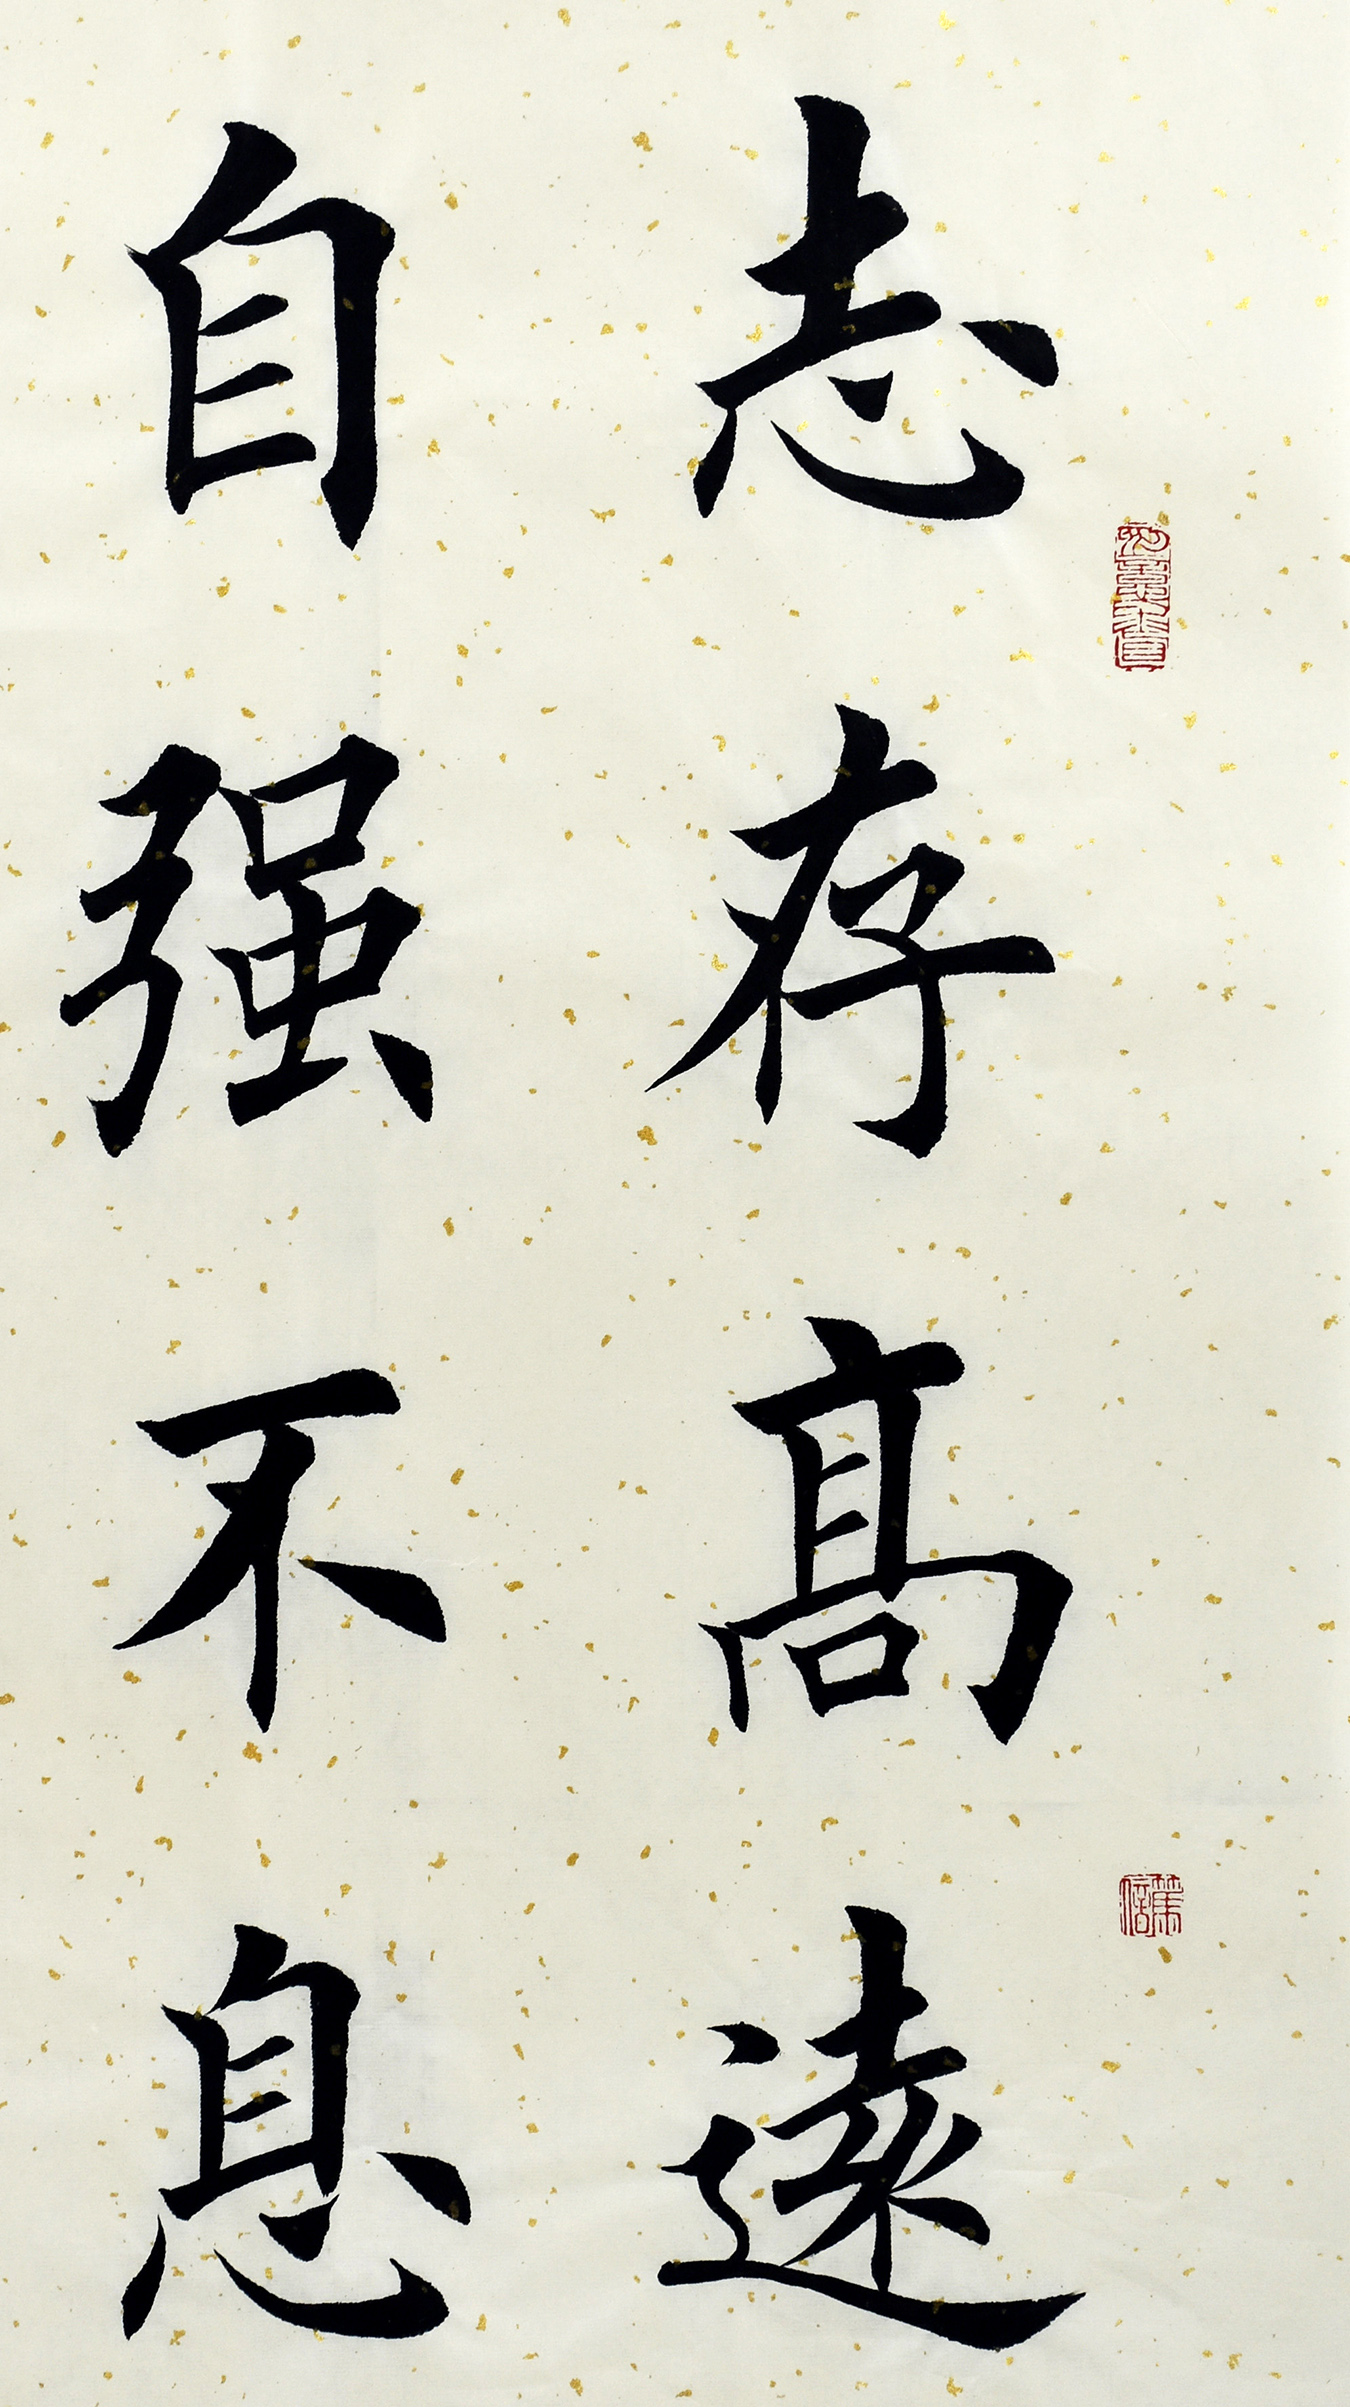 志存髙遠
自强不息